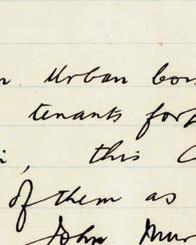 n Urban bou
tenants forf
i, this C
of them as
John Mur